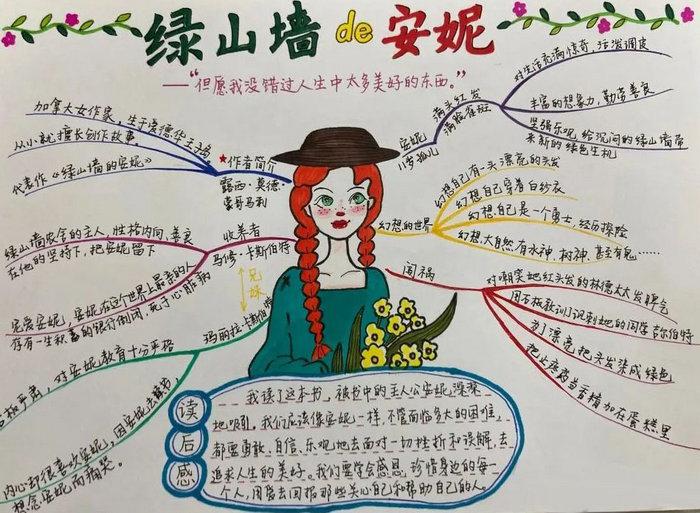 绿山墙de安妮
——“但愿我没错过人生中太多美好的东西。”
加拿大女作家，生于爱德华王子岛
从小就擅长创作故事.
代表作《绿山墙的安妮》
★作者简介
露西·莫德·
蒙哥马利
收养者
马修·卡斯伯特
绿山墙农舍的主人，性格内向，善良
在他的坚持下，把安妮留下
安爱安妮，安妮在这个世界上最亲的人
存有一生积蓄的银行倒闭，死于心脏病
兄妹
玛丽拉·卡斯伯特
对安妮教育十分严格
因安妮
内心却很喜欢安妮，
想念安妮而痛哭。
安妮
11岁孤儿
满头红发
满脸雀斑
对生活充满惊奇，活泼调皮
丰富的想象力，勤劳善良
坚强乐观，给沉闷的绿山墙带
来新的绿色生机
幻想的世界
幻想自己有一头漂亮的头发
幻想自己穿着白纱衣
幻想自己是一个勇士，经历探险
幻想大自然有水神、树神，甚至有鬼……
闯祸
对嘲笑她红头发的林德太太发脾气
用石板教训讽刺她的同学吉尔伯特
为了漂亮，把头发染成绿色
把止疼药当香精加在蛋糕里
读后感
我读了这本书，被书中的主人公安妮深深
地吸引，我们应该像安妮一样，不管面临多大的困难，
都要勇敢、自信、乐观地去面对一切挫折和误解，去
追求人生的美好。我们要学会感恩，珍惜身边的每一
个人，用爱去回报那些关心自己和帮助自己的人。